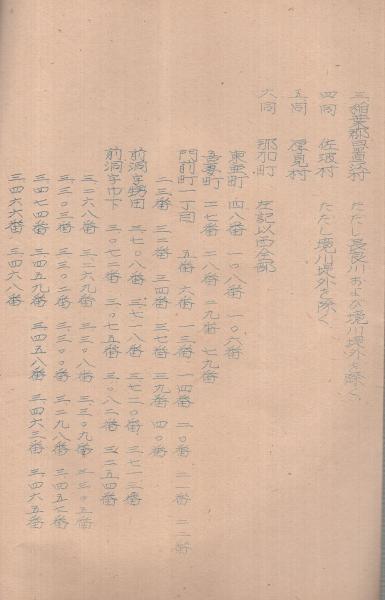 三、稲葉郡日置江村 ただし長良川および境川堤外を除く、
四、同 佐波村 ただし境川堤外を除く、
五、同 厚見村
六、同 那加町 左記以西全部
東亜町 四八番 一〇八番 一〇六番
吾妻町 二七番 二八番 二九番 七九番
門前町一丁目 五番 六番 一三番 一四番 二〇番 二一番 二二番
二三番 三二番 三四番 三七番 三九番 四〇番
前洞字甥田 三、七〇八番 三、七一八番 三、七二〇番 三、七一三番
前洞字巾下 三、〇七二番 三、〇七五番 三、〇八二番 三、二五四番
三、二六八番 三、二六九番 三、三〇八番 三、三〇九番 三、三〇五番
三、三〇三番 三、三〇二番 三、三〇〇番 三、二九八番 三、四五七番
三、四七四番 三、四五九番 三、四五八番 三、四六三番 三、四六五番
三、四六六番 三、四六八番